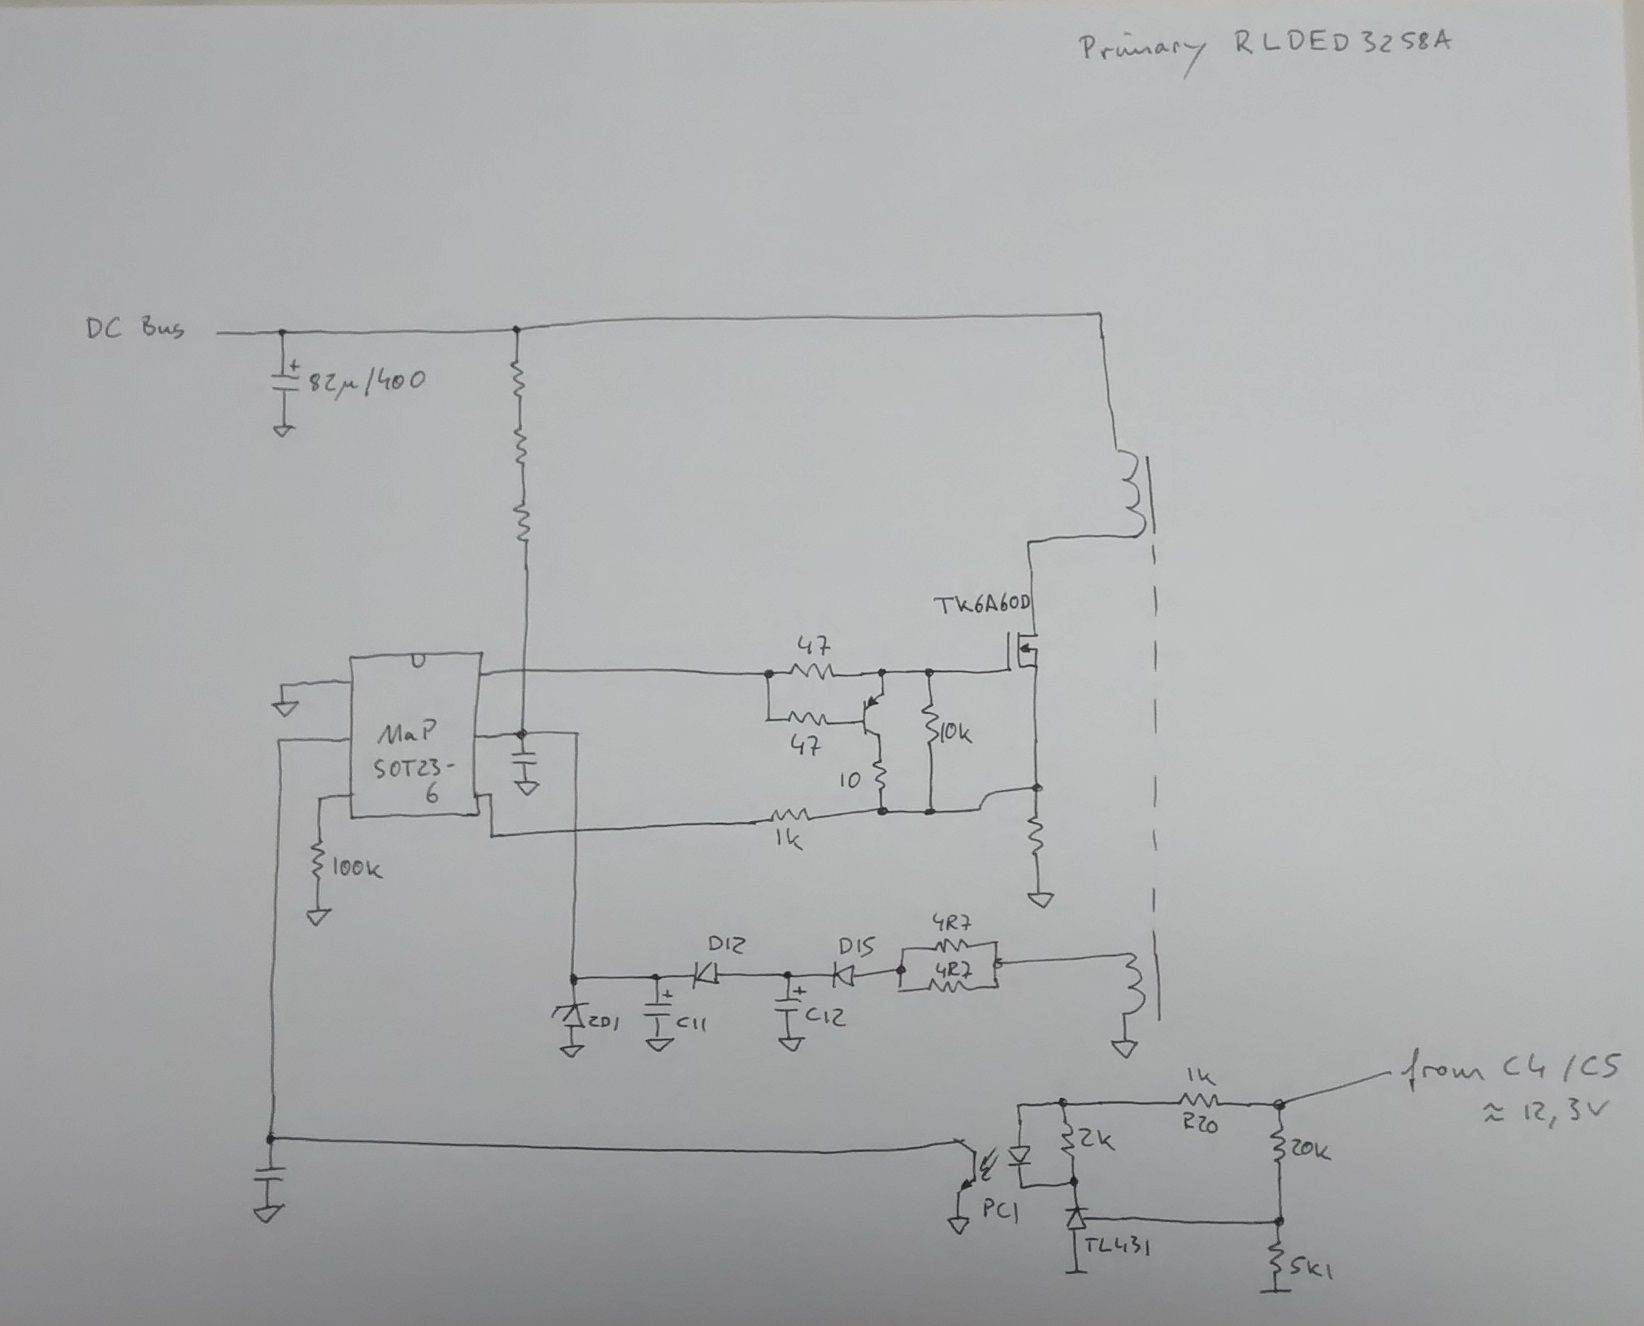 Primary RLDED3258A
DC Bus
+
82µ/400
TK6A60D
47
47
10k
10
MaP
SOT23-
6
1k
100k
4R7
D12
D15
4R7
+
+
ZD1
C11
C12
from C4/C5
≈ 12,3V
1k
R20
2k
20k
PC1
TL431
5k1